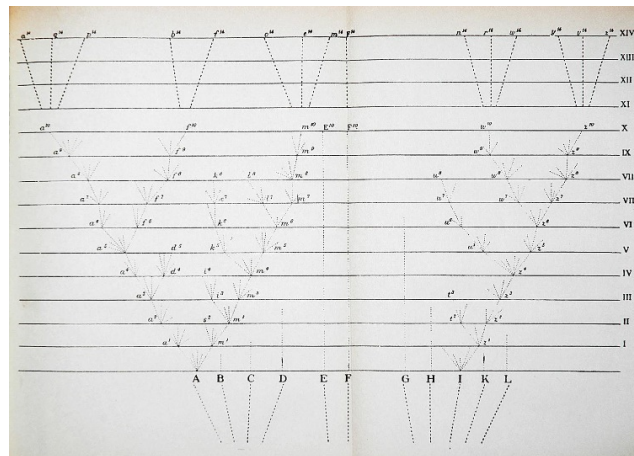 a¹⁴ q¹⁴ p¹⁴ b¹⁴ f¹⁴ o¹⁴ e¹⁴ m¹⁴ F¹⁴ n¹⁴ r¹⁴ w¹⁴ y¹⁴ v¹⁴ z¹⁴ XIV
XIII
XII
XI
a¹⁰ f¹⁰ m¹⁰ E¹⁰ F¹⁰ w¹⁰ z¹⁰ X
a⁹ f⁹ m⁹ w⁹ z⁹ IX
a⁸ f⁸ k⁸ l⁸ m⁸ u⁸ w⁸ z⁸ VII
a⁷ f⁷ k⁷ l⁷ m⁷ u⁷ w⁷ z⁷ VII
a⁶ f⁶ k⁶ m⁶ u⁶ z⁶ VI
a⁵ d⁵ k⁵ m⁵ u⁵ z⁵ V
a⁴ d⁴ i⁴ m⁴ z⁴ IV
a³ i³ m³ t³ z³ III
a² s² m² t² z² II
a¹ m¹ z¹ I
A B C D E F G H I K L